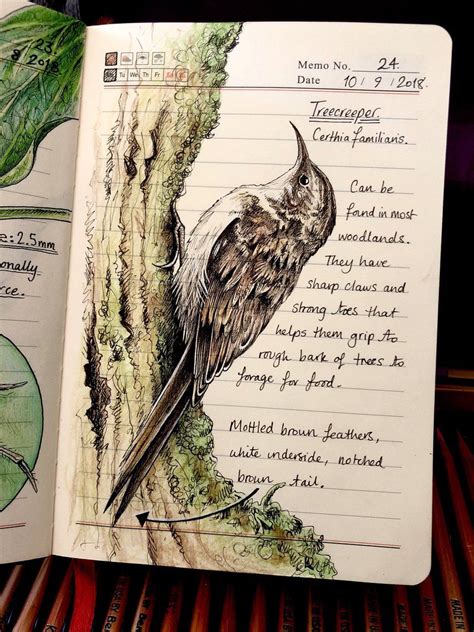 23.
8 2018.
e: 2.5mm
onally
rce.
Tu We Th Fr
Memo No. 24.
Date 10/9/2018.
Treecreeper
Certhia familians.
Can be
found in most
woodlands.
They have
sharp claws and
strong toes that
helps them grip to
rough bark of trees to
forage for food.
Mottled brown feathers,
white underside, notched
brown tail.